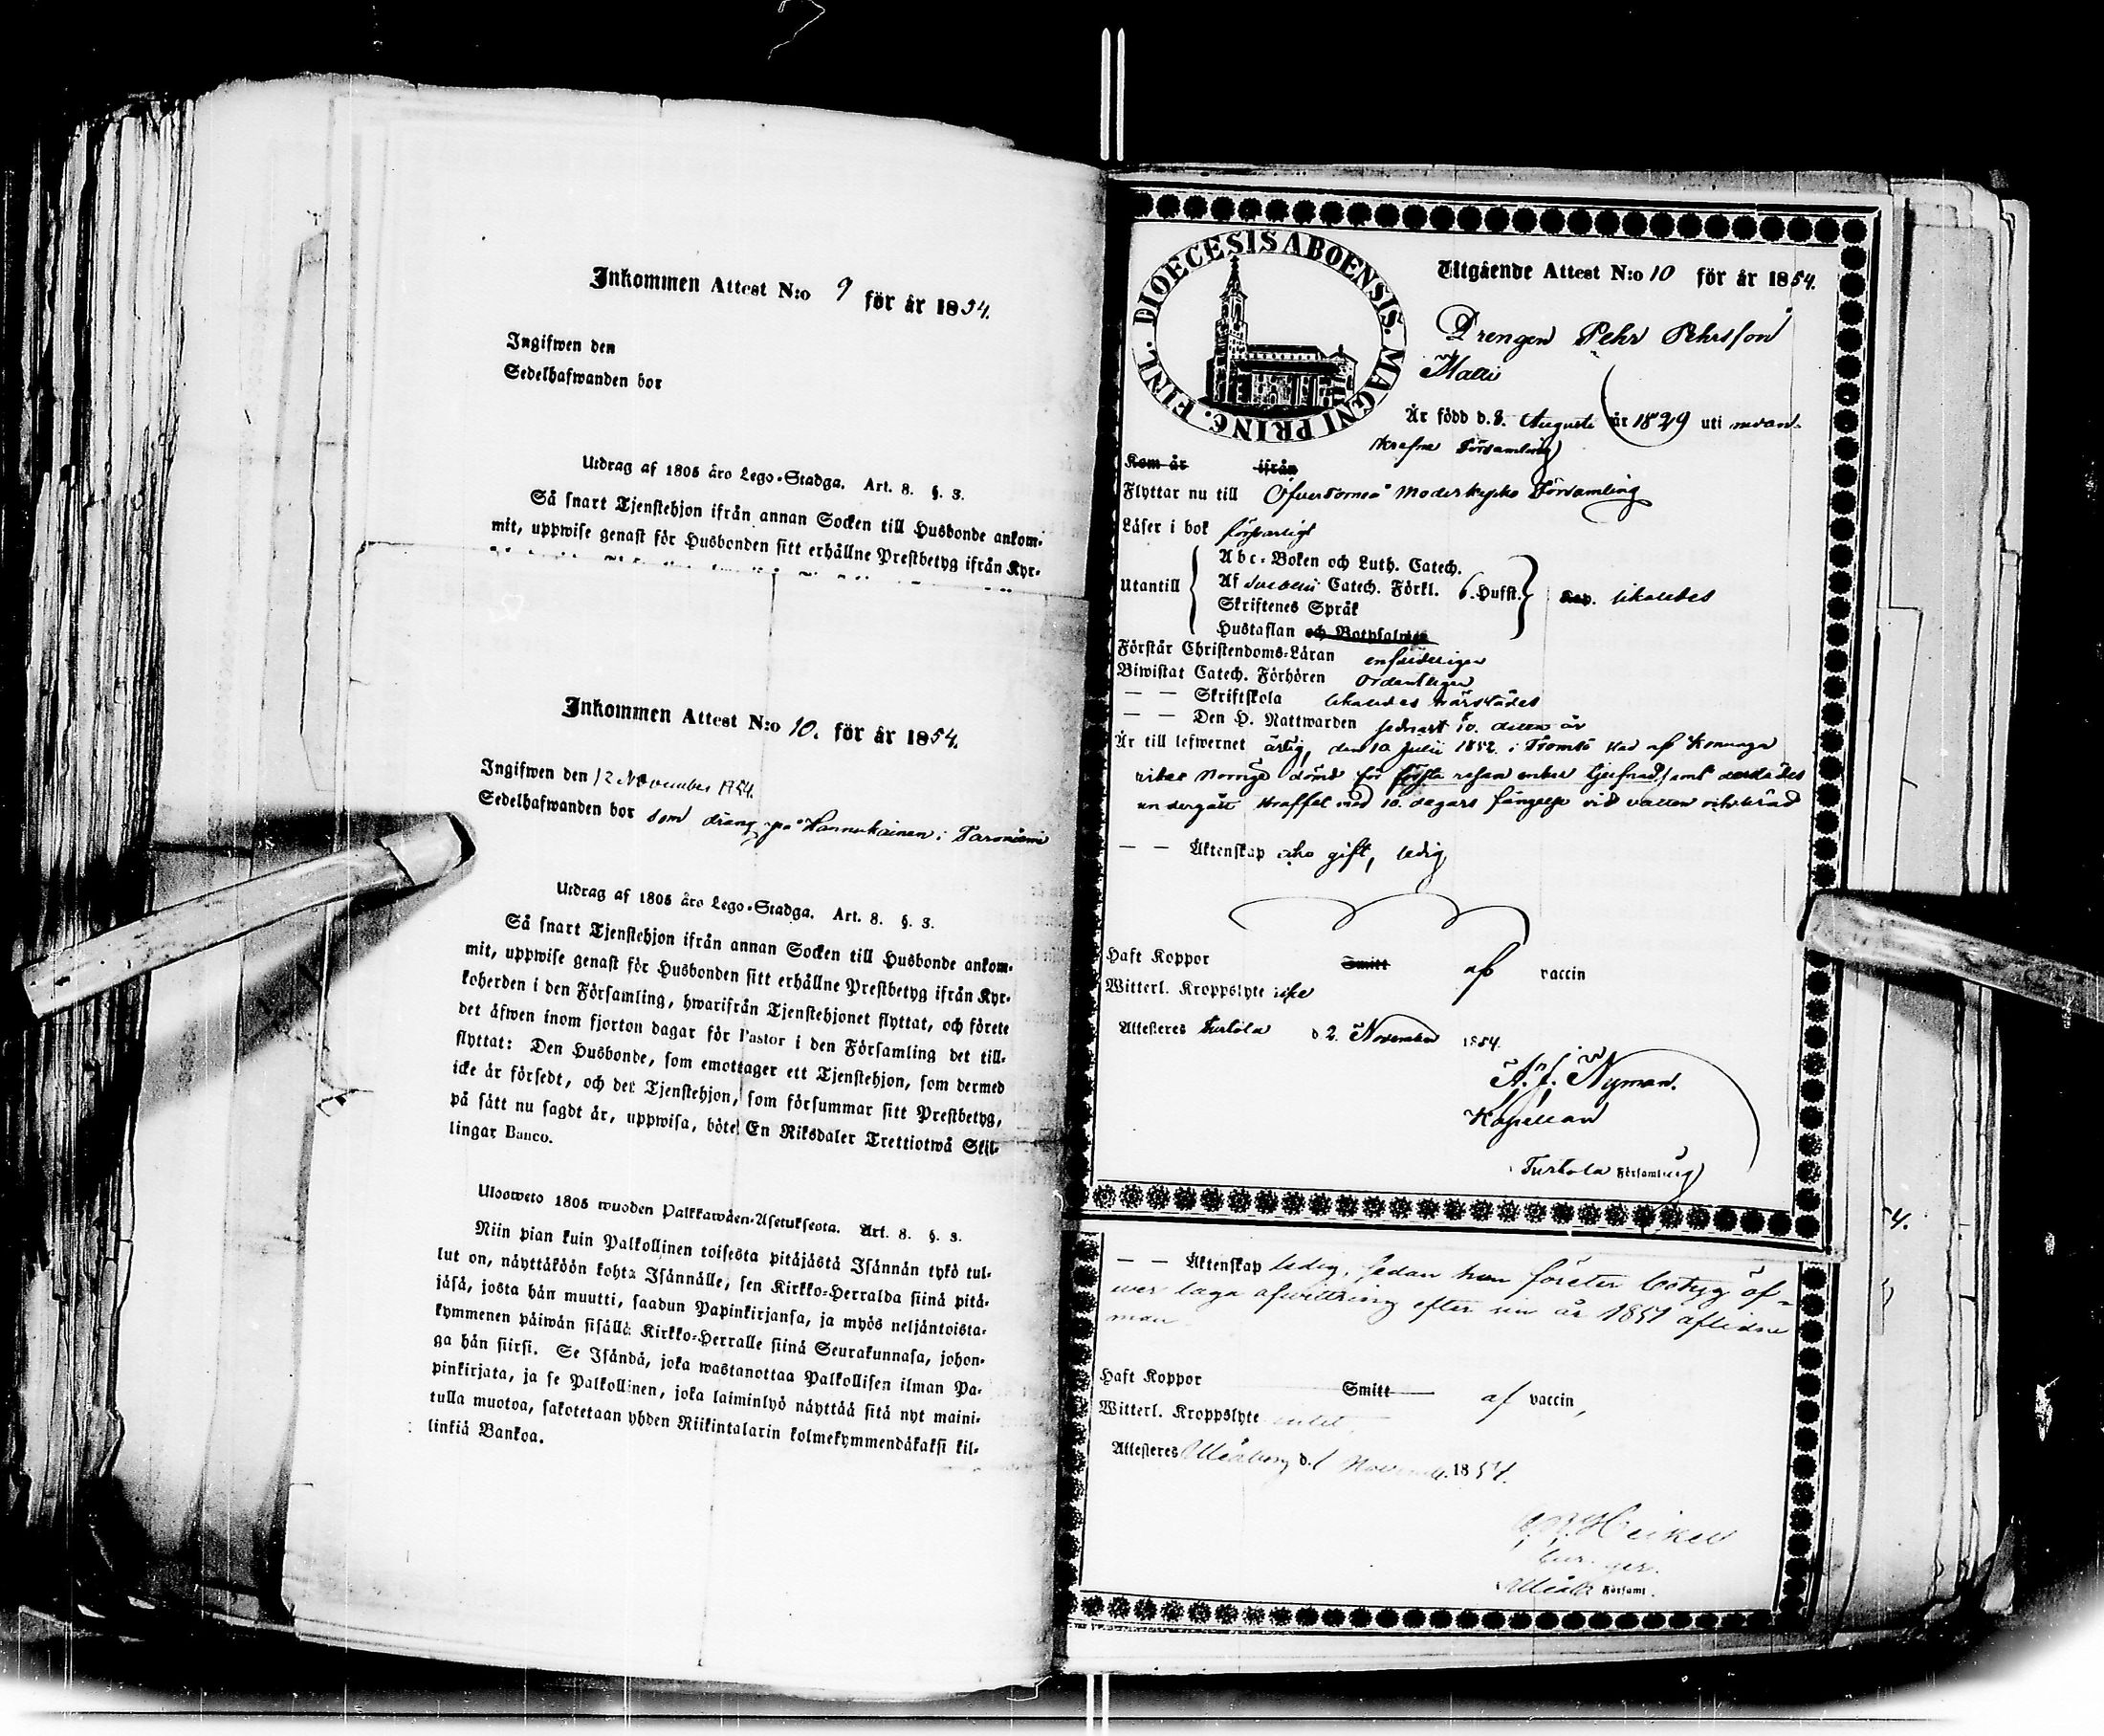 Inkommen Attest N:o 9 för år 1854.
Ingifwen den
Sedelhafwanden bor
Utdrag af 1805 års Lego-Stadga. Art. 8. §. 3.
Så snart Tjenstehjon ifrån annan Socken till Husbonde ankom-
mit, uppwise genast för Husbonden sitt erhållne Prestbetyg ifrån Kyr-
Inkommen Attest N:o 10. för år 1854.
Ingifwen den 12 November 1854.
Sedelhafwanden bor som dräng på Hannukainen i
Utdrag af 1805 års Lego-Stadga. Art. 8. §. 3.
Så snart Tjenstehjon ifrån annan Socken till Husbonde ankom-
mit, uppwise genast för Husbonden sitt erhållne Prestbetyg ifrån Kyr-
koherden i den Församling, hwarifrån Tjenstehjonet flyttat, och förete
det äfwen inom fjorton dagar för Pastor i den Församling det till-
flyttat: Den Husbonde, som emottager ett Tjenstehjon, som dermed
icke är försedt, och det Tjenstehjon, som försummar sitt Prestbetyg,
på sätt nu sagdt är, uppwisa, böte En Riksdaler Trettiotwå Skil-
lingar Banco.
Ulosweto 1805 wuoden Palkkawäen-Asetuksesta. Art. 8. §. 3.
Niin pian kuin Palkollinen toisesta pitäjästä Isännän tykö tul-
lut on, näyttäköön kohta Isännälle, sen Kirkko-Herralda siinä pitä-
jäsä, josta hän muutti, saadun Papinkirjansa, ja myös neljäntoista-
kymmenen päiwän sisällä Kirkko-Herralle siinä Seurakunnasa, johon-
ga hän siirsi. Se Isändä, joka wastanottaa Palkollisen ilman Pa-
pinkirjata, ja se Palkollinen, joka laiminlyö näyttää sitä nyt maini-
tulla muotoa, sakotetaan yhden Riikintalarin kolmekymmendäkaksi kil-
linkiä Bankoa.
DIOECESIS ABOENSIS. MAGNI PRINC. FINL.
Utgående Attest N:o 10 för år 1854.
Drengen Pehr Pehrsson
Är född d. 8. Augusti år 1829 uti ofvan-
skrefne Församling
Kom år ifrån
Flyttar nu till Öfvertorneå Moderkyrko Församling
Läser i bok försvarligt
Utantill
Abc-Boken och Luth. Catech.
Af Svebelii Catech. Förkl. 6. Hufst.
Skriftenes Språk
Hustaflan och Botpsalmen
Kap. likaledes
Förstår Christendoms-Läran enfaldeligen
Biwistat Catech. Förhören ordentligen
— — Skriftskola likaledes
— — Den H. Nattwarden sednast 10. detta år
Är till lefwernet ärlig, den 10 Julii 1852. i Tromsö stad af Konunga
riket Norrige dömd för första resan enkel tjufnad, samt derstädes
undergått straffet med 10. dagars fängelse vid vatten och bröd
— — Äktenskap icke gift, ledig
Haft Koppor Smitt af vaccin
Witterl. Kroppslyte icke
Attesteras Turtola d 2. November 1854.
Nyman.
Kapellan
Turtola Församling
— — Äktenskap ledig, sedan hon företer betyg öf-
wer laga afwittring efter sin år 1851 aflidne
man
Haft Koppor Smitt af vaccin,
Witterl. Kroppslyte intet
Attesteras Uleåborg d. 1 November 1854.
Heikel
Uleå Församl.